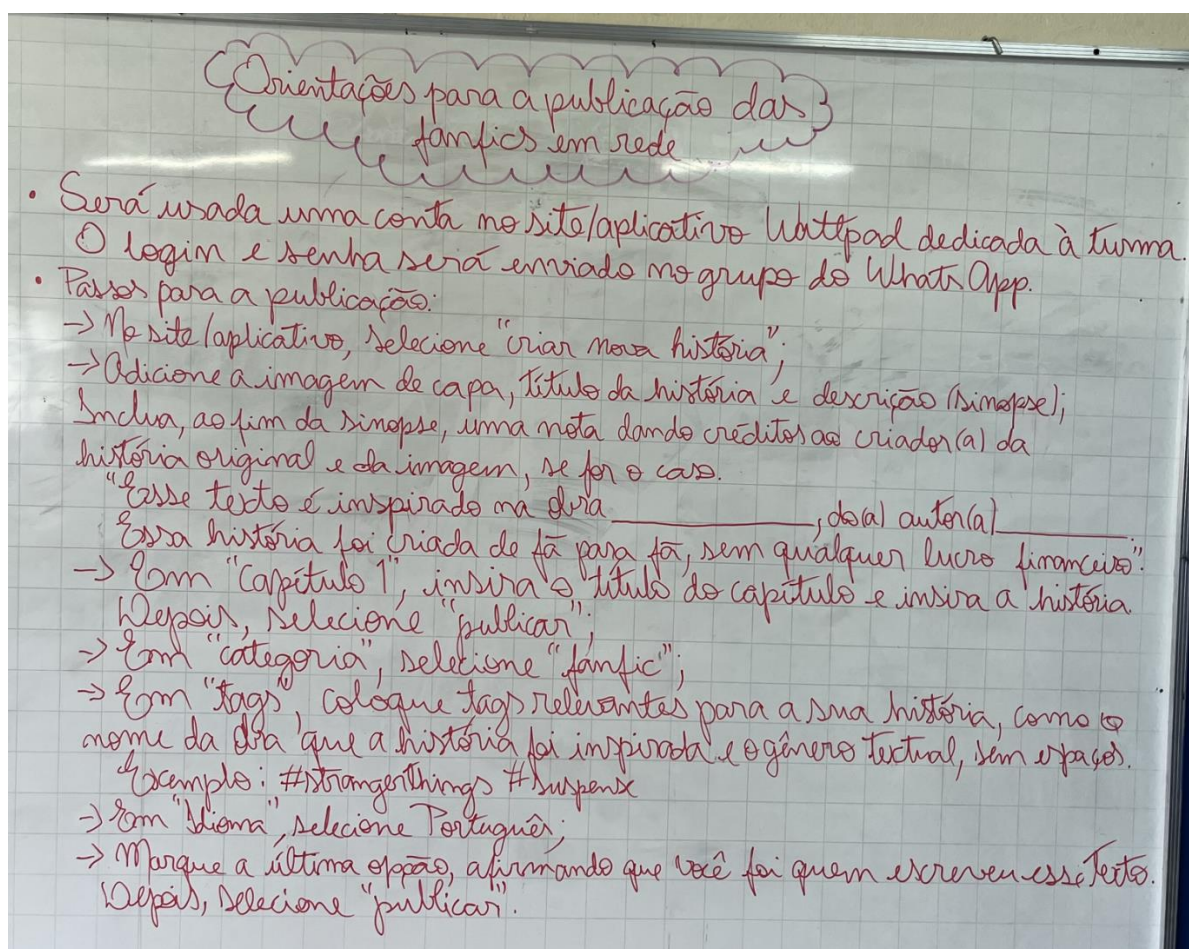 Orientações para a publicação das
fanfics em rede
• Será usada uma conta no site/aplicativo Wattpad dedicada à turma.
O login e senha será enviado no grupo do WhatsApp.
• Passos para a publicação:
-> No site/aplicativo, selecione "criar nova história";
-> Adicione a imagem de capa, título da história e descrição (sinopse);
Inclua, ao fim da sinopse, uma nota dando créditos ao criador(a) da
história original e da imagem, se for o caso.
"Esse texto é inspirado na obra ____________, do(a) autor(a)________.
Essa história foi criada de fã para fã, sem qualquer lucro financeiro".
-> Em "Capítulo 1", insira o título do capítulo e insira a história.
Depois, selecione "publicar";
-> Em "categoria", selecione "fanfic";
-> Em "tags", coloque tags relevantes para a sua história, como o
nome da obra que a história foi inspirada e o gênero textual, sem espaços.
Exemplo: #strangerthings #suspense
-> Em "Idioma", selecione Português;
-> Marque a última opção, afirmando que você foi quem escreveu esse texto.
Depois, selecione "publicar".